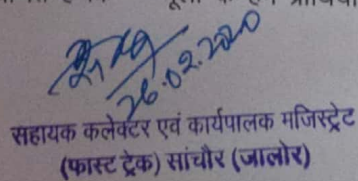 26.02.2020
सहायक कलेक्टर एवं कार्यपालक मजिस्ट्रेट
(फास्ट ट्रेक) सांचौर (जालोर)